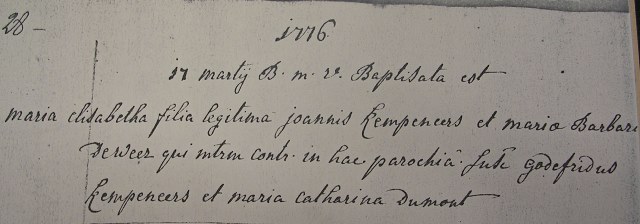 28 -
1776
17 martij B. m. v. Baptisata est
maria elisabetha filia legitima joannis Kempeneers et mariæ Barbara
Deweer qui mtrm contr. in hac parochiâ. Susc. godefridus
Kempeneers et maria catharina Dumont